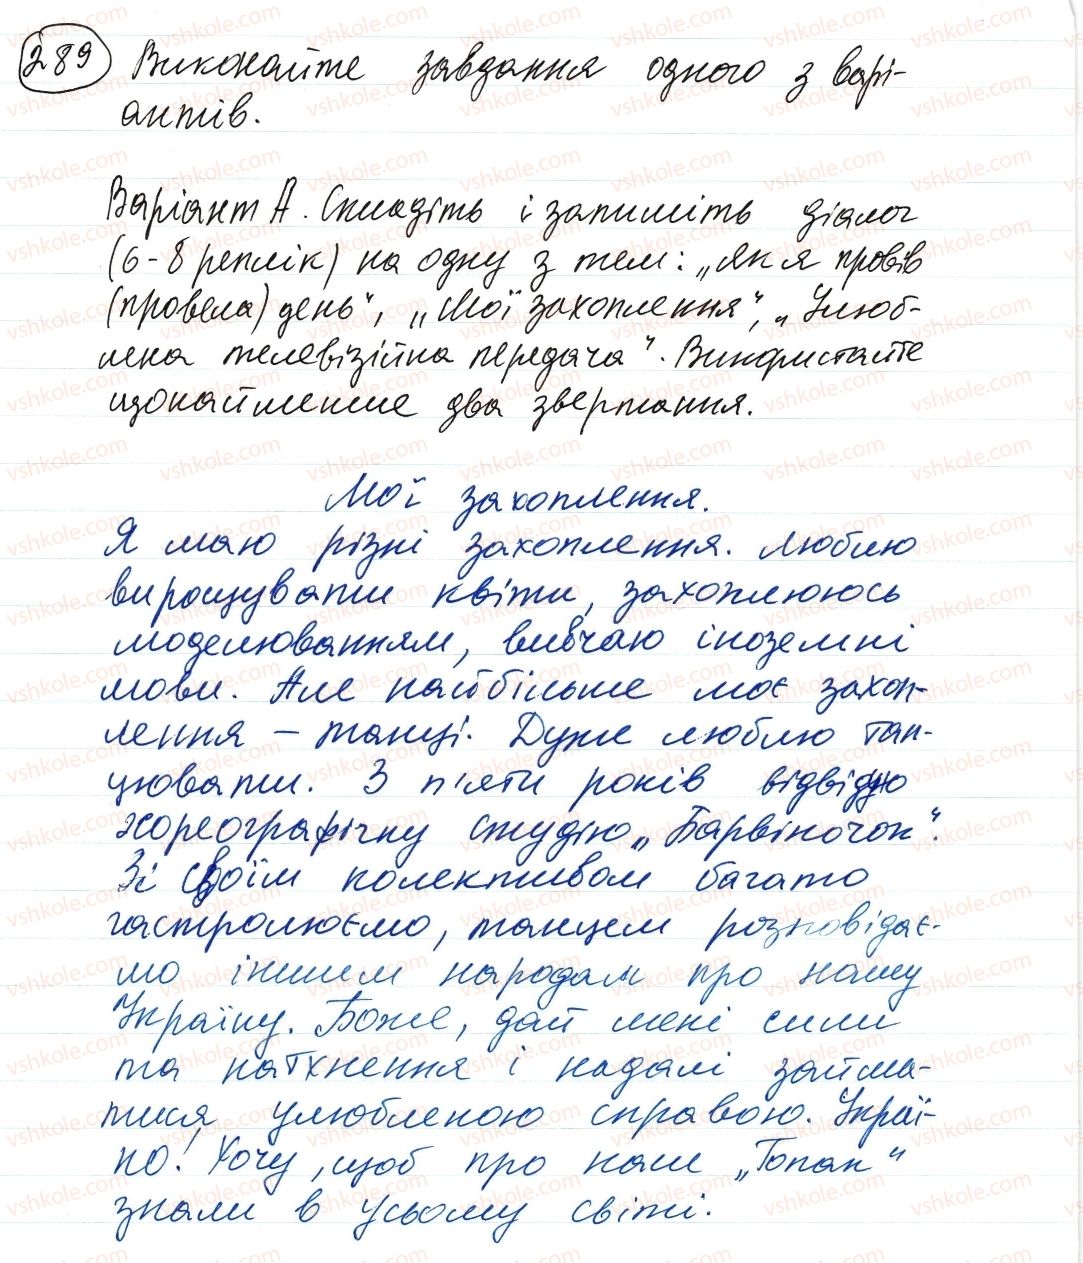 289 Виконайте завдання одного з варі-
антів.
Варіант А. Складіть і запишіть діалог
(6-8 реплік) на одну з тем: „Як я провів
(провела) день“, „Мої захоплення“, „Улюб-
лена телевізійна передача“. Використайте
щонайменше два звертання.
Мої захоплення.
Я маю різні захоплення. Люблю
вирощувати квіти, захоплююсь
моделюванням, вивчаю іноземні
мови. Але найбільше моє захоп-
лення – танці. Дуже люблю тан-
цювати. З п'яти років відвідую
хореографічну студію „Барвіночок“.
Зі своїм колективом багато
гастролюємо, танцем розповідає-
мо іншим народам про нашу
Україну. Боже, дай мені сили
та натхнення і надалі займа-
тися улюбленою справою. Украї-
но! Хочу, щоб про наш „Гопак“
знали в усьому світі.